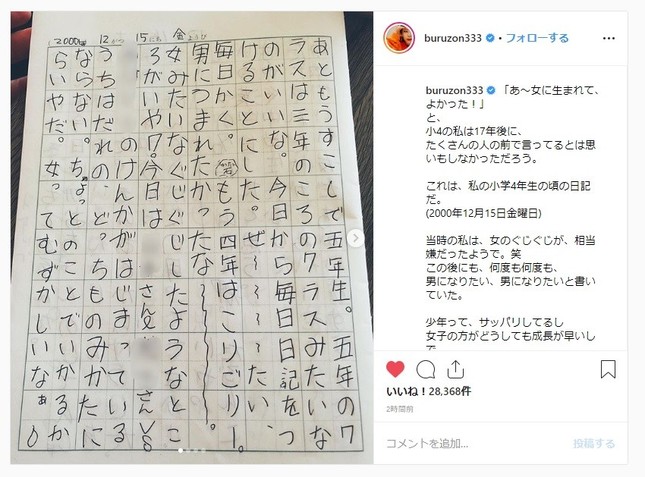 2000年 12がつ 15にち 金ようび
あともうすこしで五年生。五年のク
ラスは三年のころのクラスみたいな
のがいいな。今日から毎日日記をつ
けることにした。ぜ〜〜ったい、
毎日かく。もう四年はこりごりー。
男にうまれたかったな〜〜〜。
女みたいなぐじぐじしたようなとこ
ろがいや。今日は さんと さんVS
のけんかがはじまっている
うちはどっちものみかたに
ちょっとのことでいかるか
らいやだ。女ってむずかしいなぁ
buruzon333 • フォローする
buruzon333 「あ〜女に生まれて、
よかった！」
と、
小4の私は17年後に、
たくさんの人の前で言ってるとは思
いもしなかっただろう。
これは、私の小学4年生の頃の日記
だ。
(2000年12月15日金曜日)
当時の私は、女のぐじぐじが、相当
嫌だったようで。笑
この後にも、何度も何度も、
男になりたい、男になりたいと書い
ていた。
少年って、サッパリしてるし
女子の方がどうしても成長が早いし
で
いいね！28,368件
2時間前
コメントを追加...
投稿する